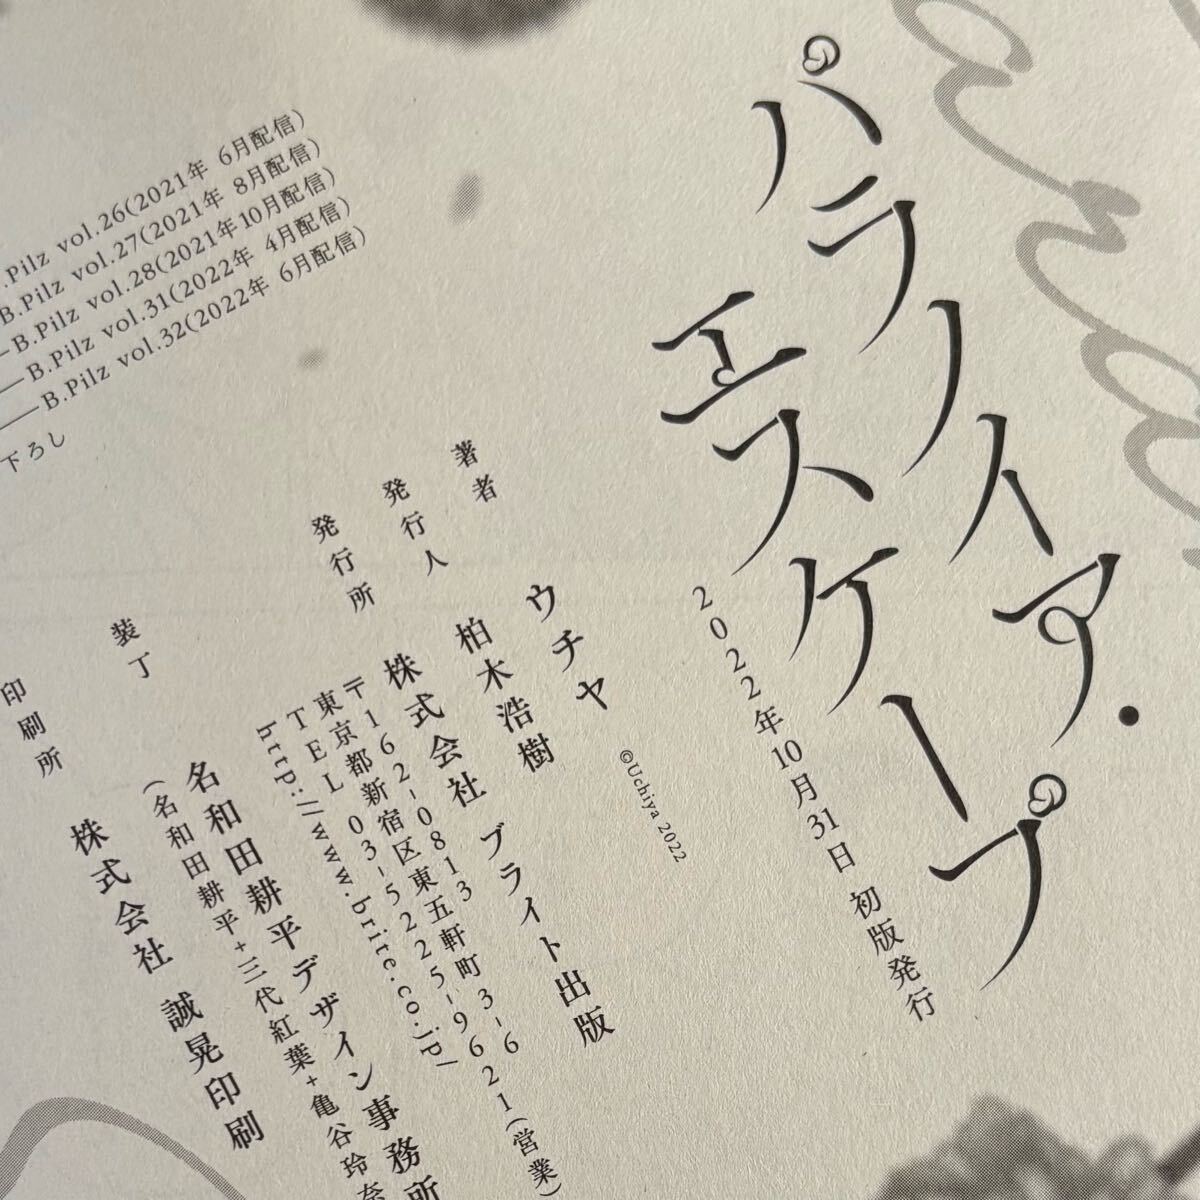 パラノイア・
エスケープ
2022年10月31日 初版発行
©Uchiya 2022
著者 ウチヤ
発行人 柏木浩樹
発行所 株式会社 ブライト出版
〒162-0813
東京都新宿区東五軒町3-6
TEL 03-5225-9621(営業)
http://www.brite.co.jp/
装丁 名和田耕平デザイン事務所
(名和田耕平+三代紅葉+亀谷玲奈
印刷所 株式会社 誠晃印刷
.Pilz vol.26(2021年 6月配信)
B.Pilz vol.27(2021年 8月配信)
—B.Pilz vol.28(2021年10月配信)
—B.Pilz vol.31(2022年 4月配信)
—B.Pilz vol.32(2022年 6月配信)
下ろし